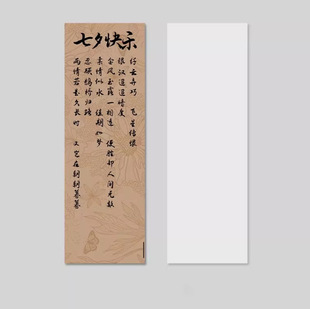 七夕快乐
纤云弄巧 飞星传恨
银汉迢迢暗度
金风玉露一相逢 便胜却人间无数
柔情似水 佳期如梦
忍顾鹊桥归路
两情若是久长时 又岂在朝朝暮暮